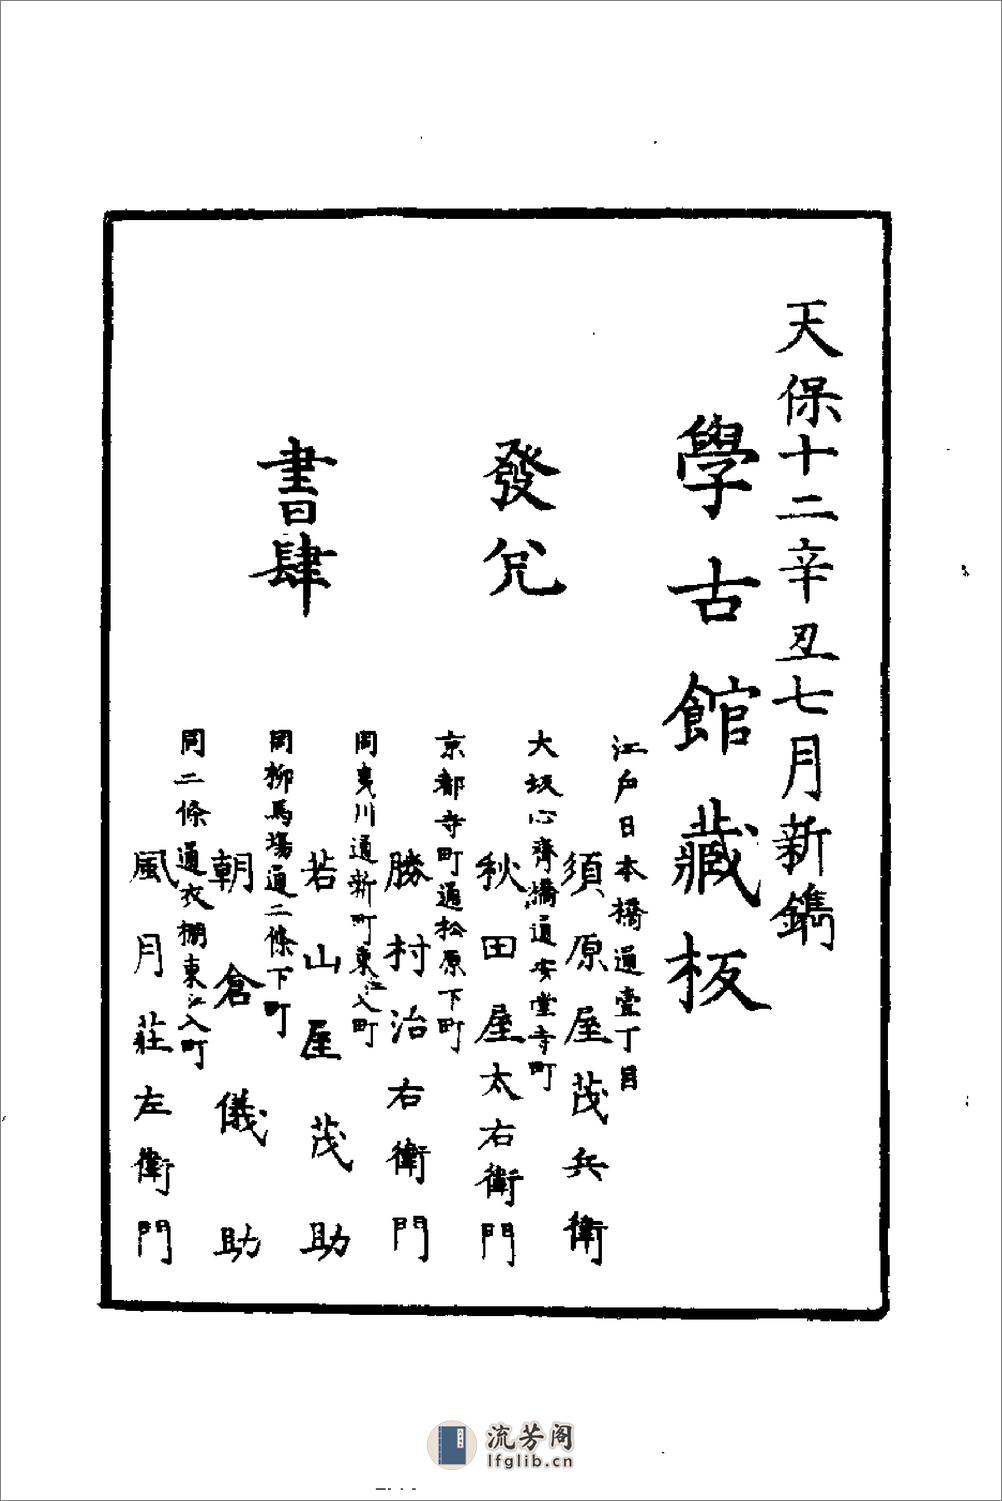 天保十二辛丑七月新鐫
學古館藏板
發兌
書肆
江戶日本橋通壹丁目
須原屋茂兵衛
大坂心齋橋通安堂寺町
秋田屋太右衛門
京都寺町通松原下町
勝村治右衛門
同夷川通新町東江入町
若山屋茂助
同柳馬場通二條下町
朝倉儀助
同二條通衣棚東江入町
風月莊左衛門
流芳阁
lfglib.cn